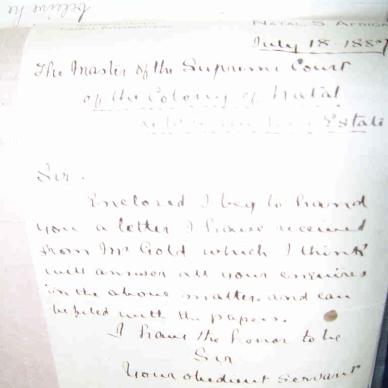 believe he
NATAL, S. AFRICA
July 18. 188
The Master of the Supreme Court
of the Colony of Natal
Estate
Sir.
Enclosed I beg to hand
you a letter I have received
from Mr Gold which I think
will answer all your enquires
in the above matter and can
be filed with the papers.
I have the honor to be
Sir
Your obedient servant